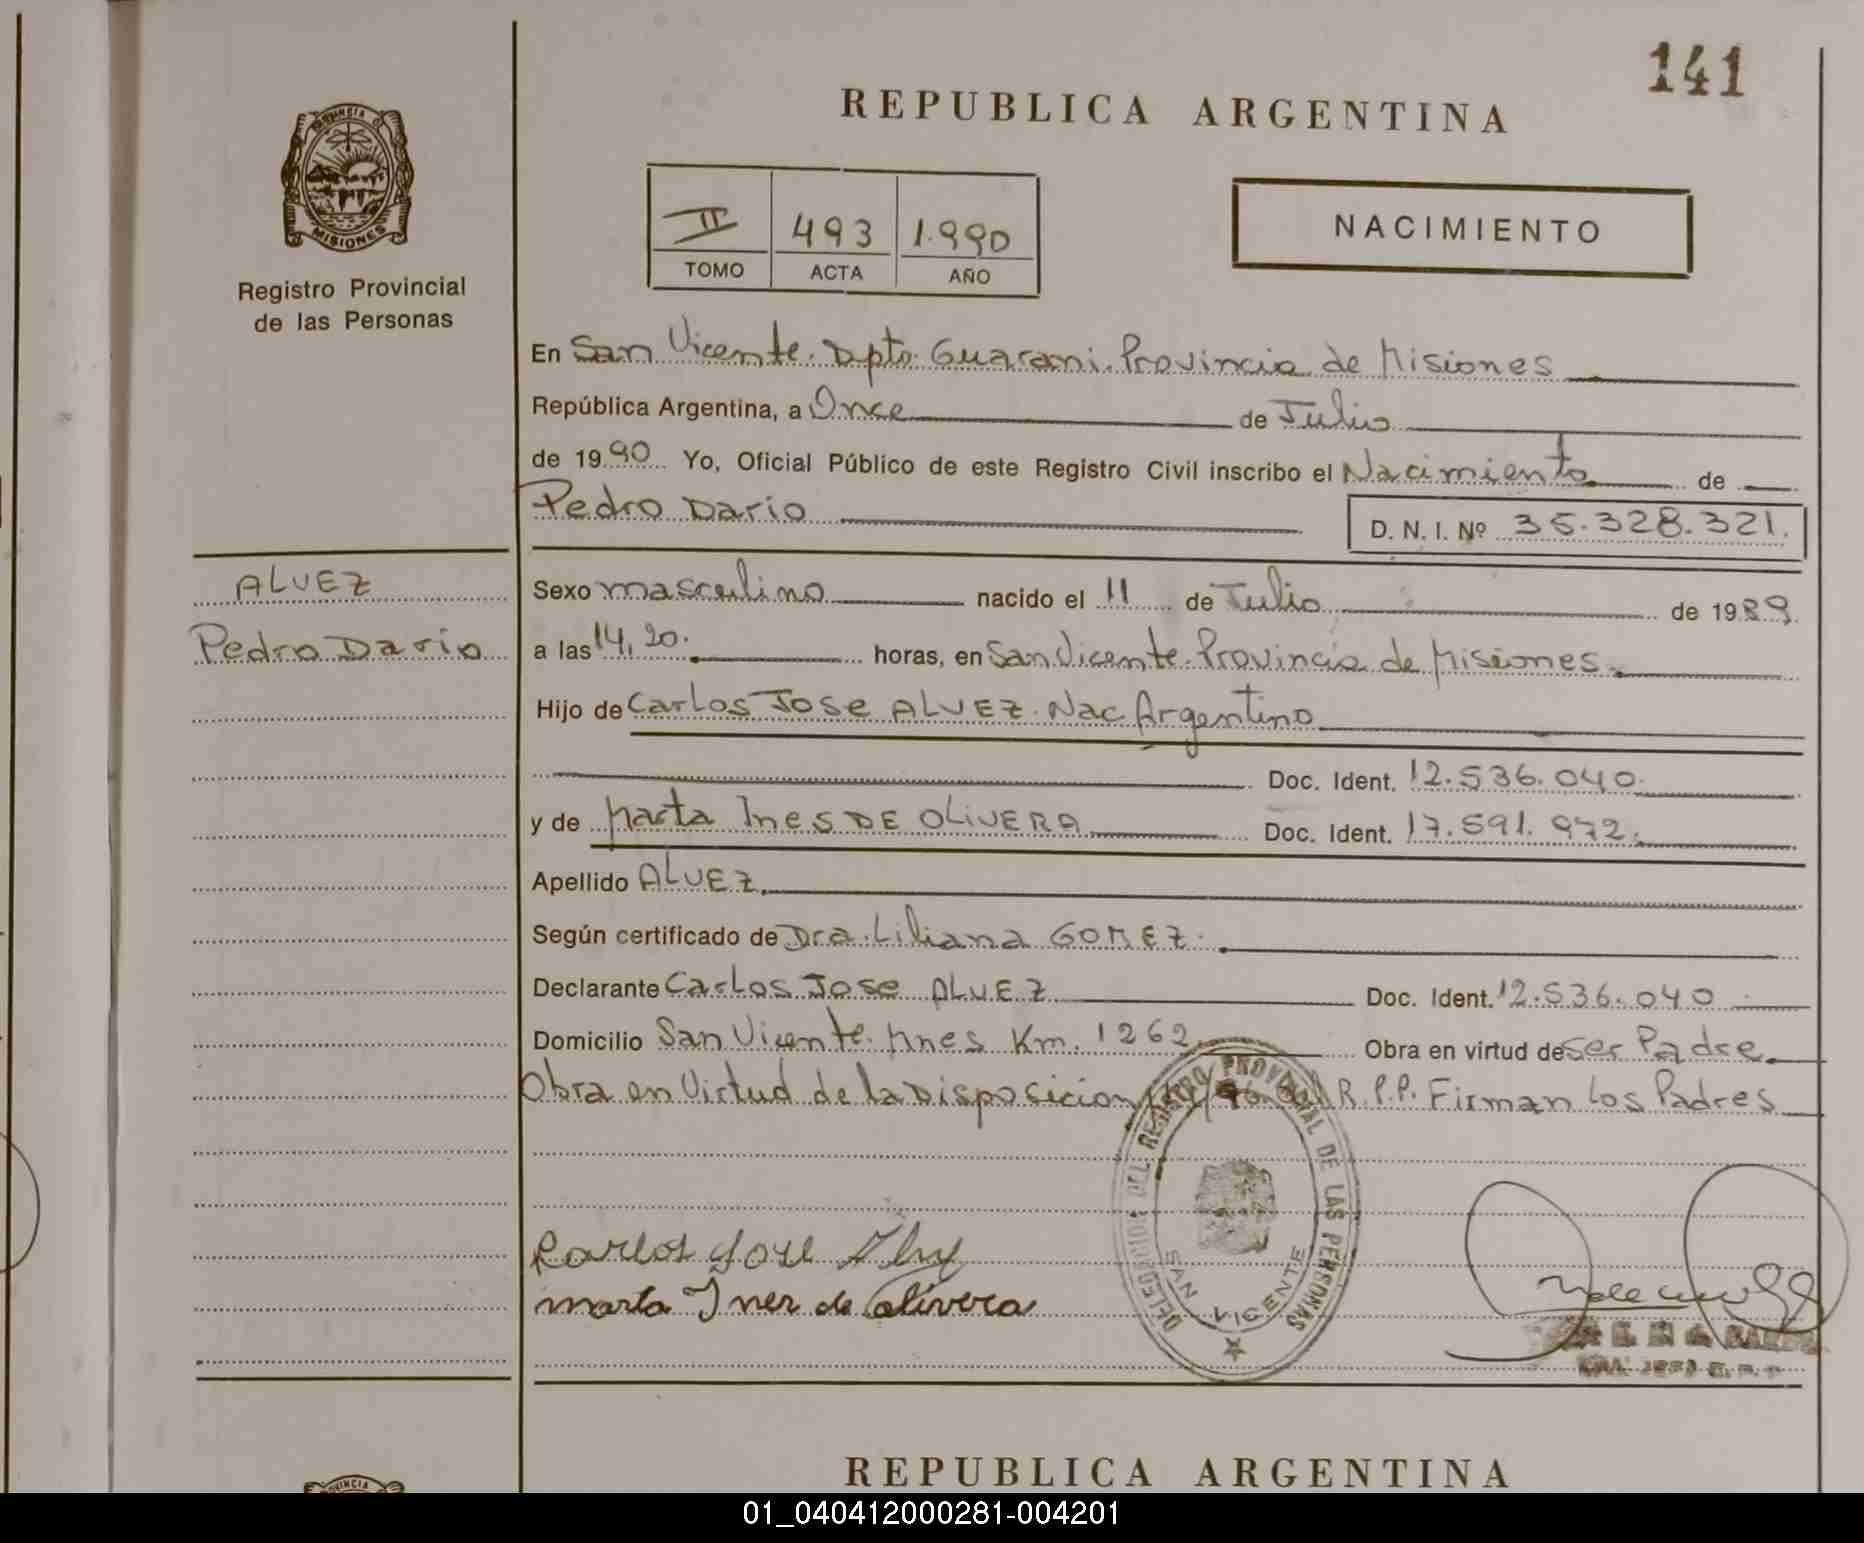 141
REPUBLICA ARGENTINA
PROVINCIA D
MISIONES
Registro Provincial
de las Personas
II 493 1.990
TOMO ACTA AÑO
NACIMIENTO
En San Vicente. Dpto. Guarani. Provincia de Misiones
República Argentina, a Once de Julio
de 1990 Yo, Oficial Público de este Registro Civil inscribo el Nacimiento de
Pedro Dario
D. N. I. Nº 35.328.321.
ALVEZ
Pedro Dario
Sexo masculino nacido el 11 de Julio de 1989
a las 14,20. horas, en San Vicente. Provincia de Misiones.
Hijo de Carlos Jose ALVEZ. Nac Argentino
Doc. Ident. 12.536.040.
y de Marta Ines DE OLIVERA Doc. Ident. 17.591.972.
Apellido ALVEZ.
Según certificado de Dra. Liliana GOMEZ.
Declarante Carlos Jose ALVEZ Doc. Ident. 12.536.040
Domicilio San Vicente. Mnes Km. 1262. Obra en virtud de ser Padre.
Obra en Virtud de la Disposicion R.P.P. Firman Los Padres
DELEGACION DEL REGISTRO PROVINCIAL DE LAS PERSONAS
SAN VICENTE
Carlos Jose Alvez
Marta Ines de Olivera
REPUBLICA ARGENTINA
VINCIA
01_040412000281-004201